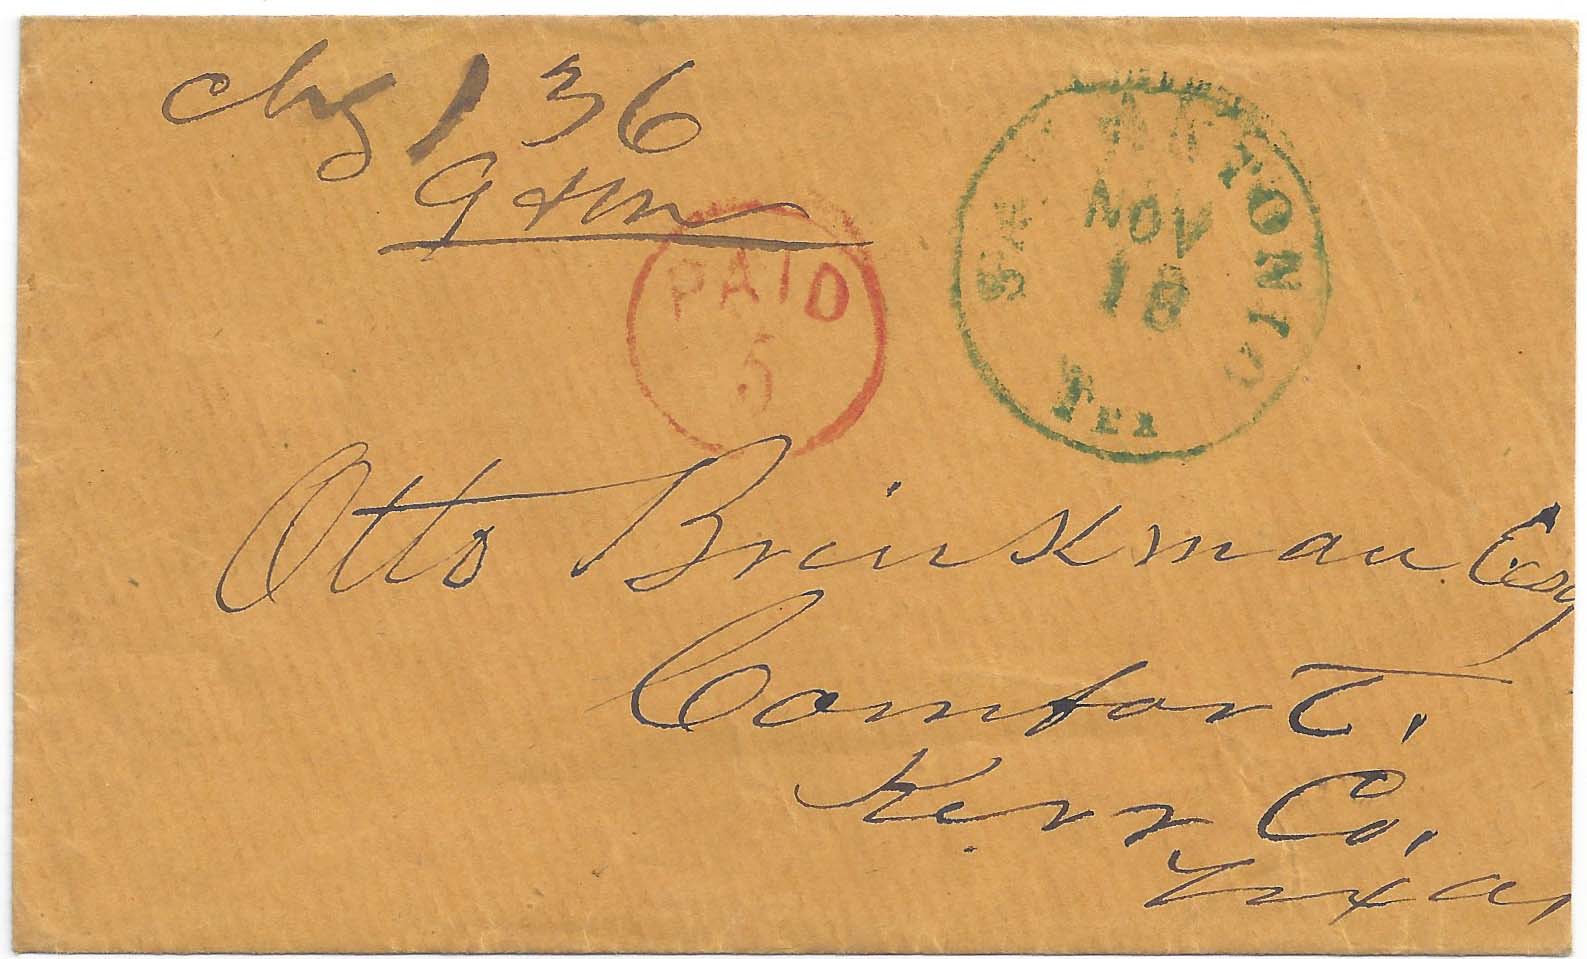 Chg 136
PAID
5
SAN ANTONIO
NOV
18
TEX
Otto Brinkman Esq
Comfort.
Kerr Co.
Texas